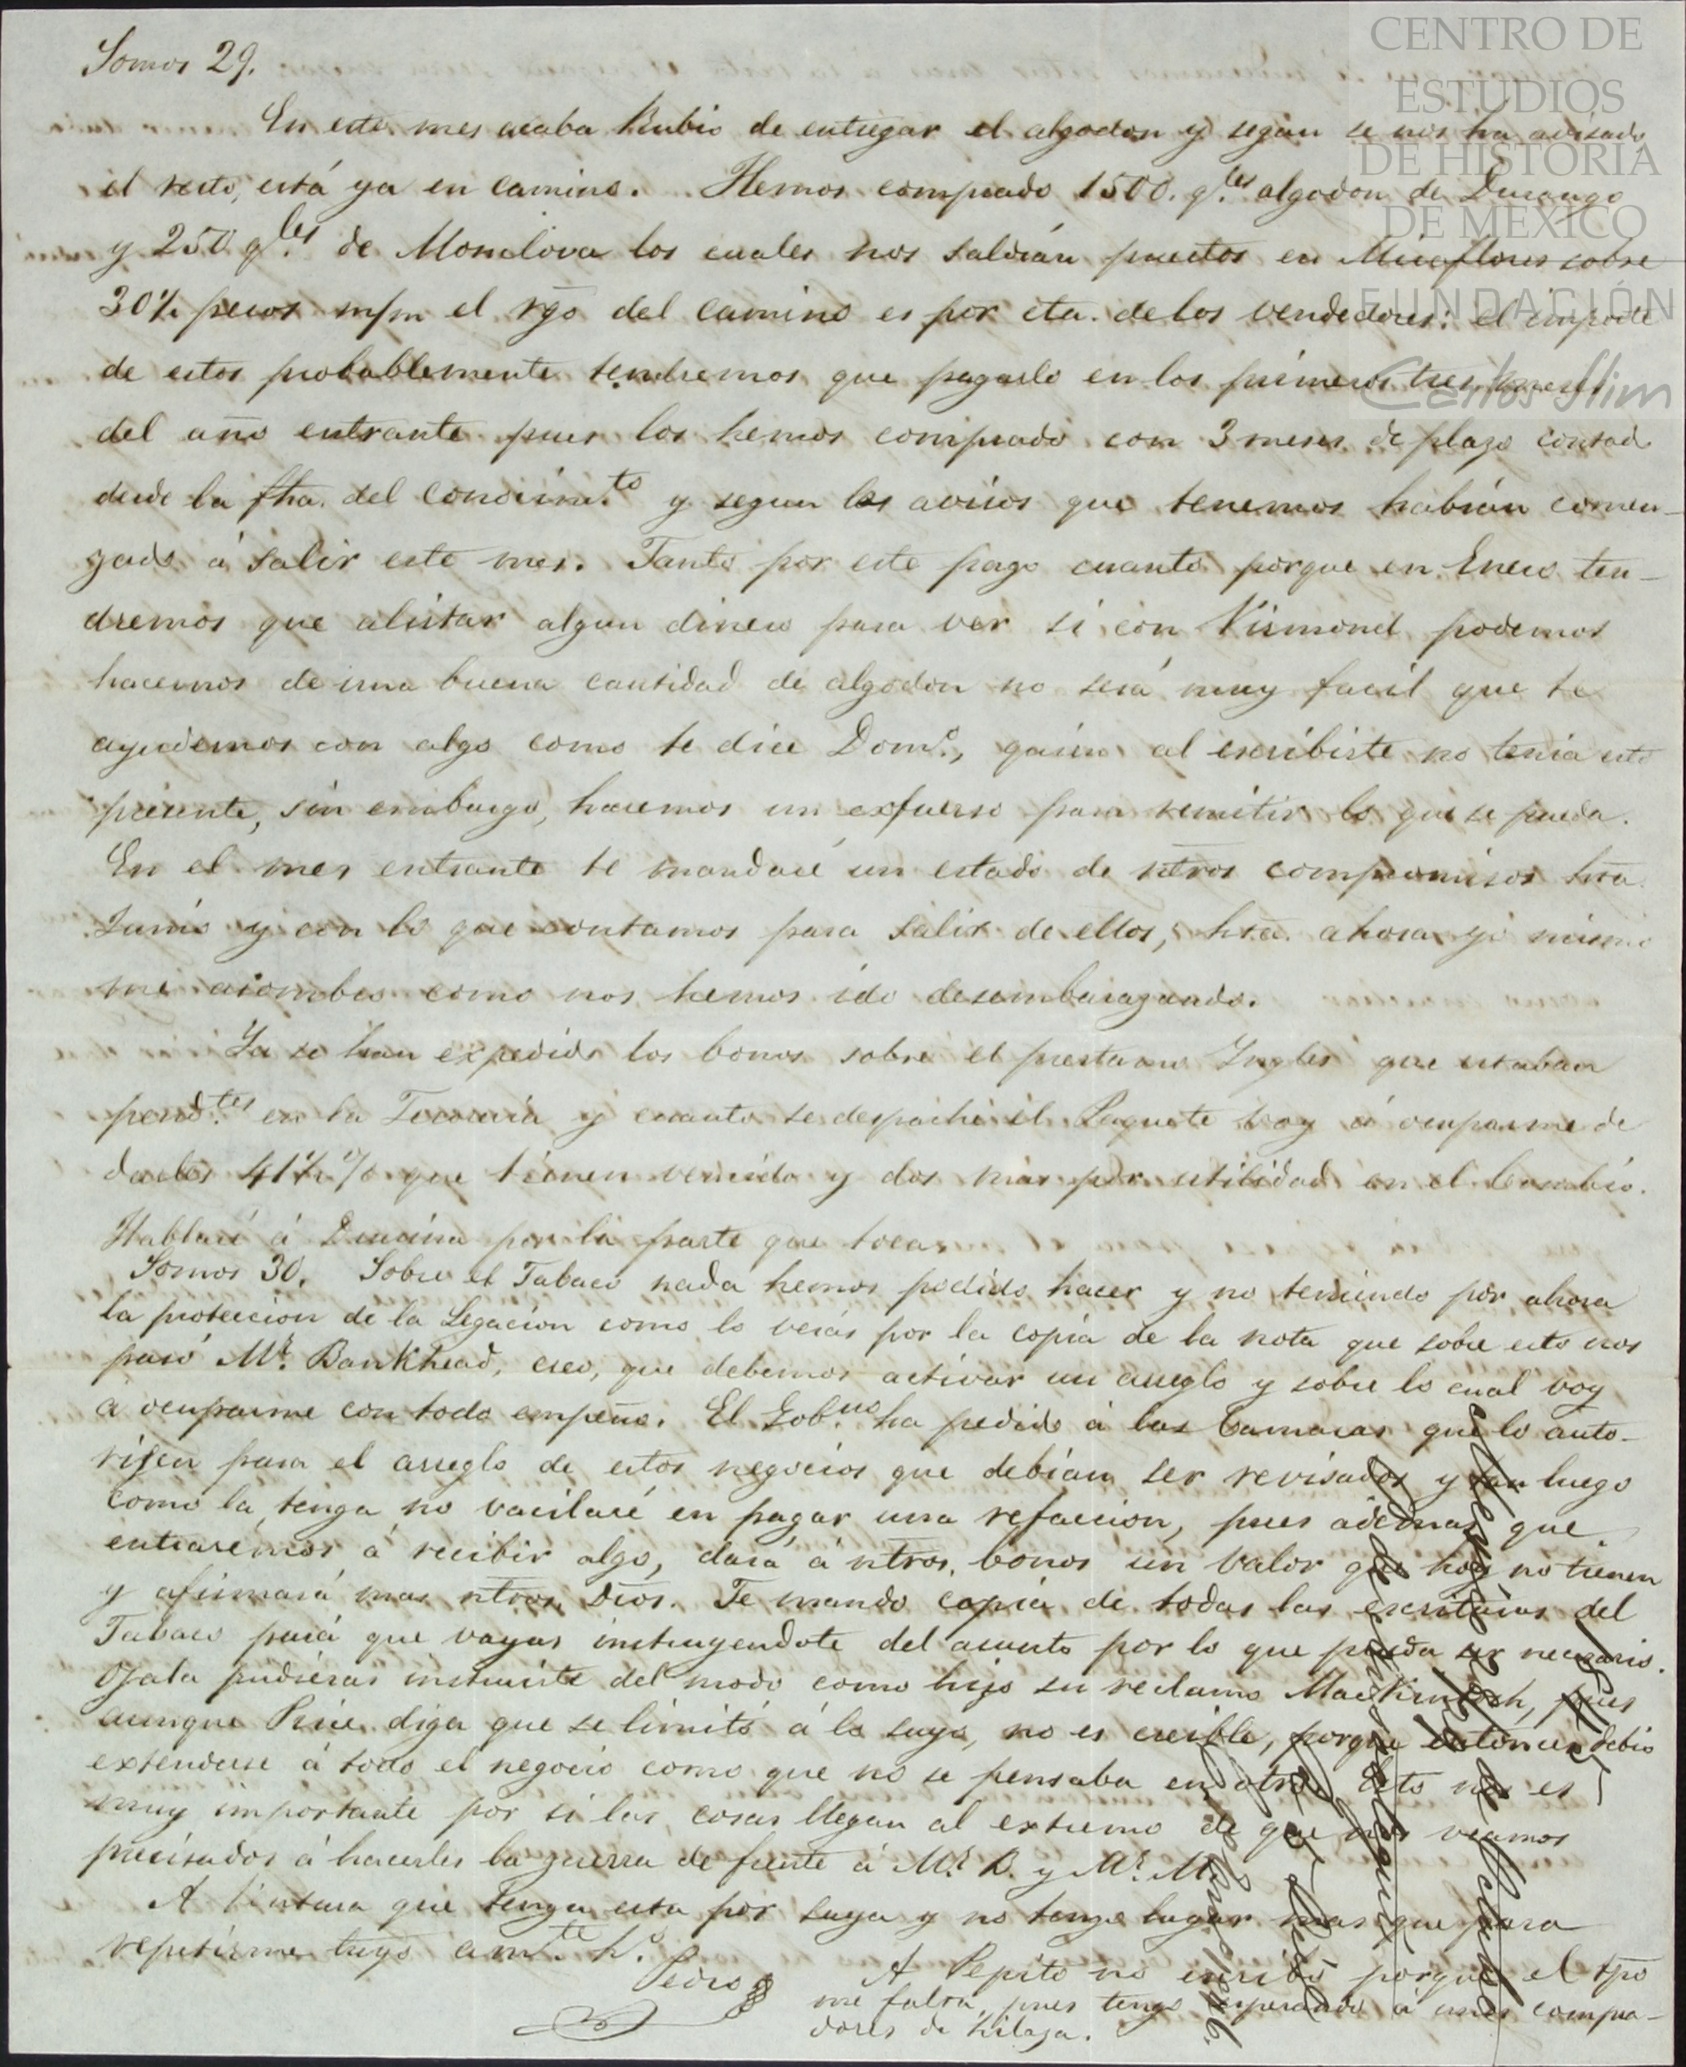 CENTRO DE
ESTUDIOS
DE HISTORIA
DE MEXICO
FUNDACIÓN
Carlos Slim
Somos 29.
En este mes acaba Rubio de entregar el algodon y segun se nos ha avisado
el resto, está ya en camino. Hemos comprado 1500. q.les algodon de Durango
y 250 q.les de Monclova los cuales nos saldrán puestos en Miraflores sobre
30½ pesos m/m el rgo del camino es por cta. de los vendedores: el importe
de estos probablemente tendremos que pagarlo en los primeros tres meses
del año entrante pues los hemos comprado con 3 meses de plazo contad
desde la fha. del conocim.to y segun los avisos que tenemos habrán comen-
zado á salir este mes. Tanto por este pago cuanto porque en Enero ten-
dremos que alistar algun dinero para ver si con Virmond podemos
hacernos de una buena cantidad de algodon no será muy facil que te
ayudemos con algo como te dice Dom.o, quien al escribirte no tenia esto
presente, sin embargo, haremos un exfuerso para remitir lo que se pueda.
En el mes entrante te mandaré un estado de ntros compromisos hta.
Junio y con lo que contamos para salir de ellos, hta. ahora yo mismo
me asombro como nos hemos ido desembarazando.
Ya se han expedido los bonos sobre el prestamo Ingles que estaban
pend.tes en la Tesoreria y cuanto se despache el Paquete voy á ocuparme de
darlos 41½% que tienen vencido y dos mas por utilidad en el Cambio.
Hablaré á por la parte que toca
Somos 30. Sobre el Tabaco nada hemos podido hacer y no teniendo por ahora
la proteccion de la Legacion como lo verás por la copia de la nota que sobre esto nos
pasó Mr. Bankhead, creo, que debemos activar un arreglo y sobre lo cual voy
á ocuparme con todo empeño. El Gob.no ha pedido á las Camaras que lo auto-
risen para el arreglo de estos negocios que debian ser revisados y tan luego
como la tenga no vacilaré en pagar una refaccion, pues ademas que
entraremos á recibir algo, dará á ntros. bonos un valor que hoy no tienen
y afirmará mas ntros. Dros. Te mando copia de todas las escrituras del
Tabaco para que vayas instruyendote del asunto por lo que pueda ser necesario.
Ojala pudieras instruirte del modo como hizo su reclamo Mackintosh, pues
aunque Price diga que se limitó á lo suyo, no es creible, porque entónces debio
extenderse á todo el negocio como que no se pensaba en otro. Esto nos es
muy importante por si las cosas llegan al extremo de que nos veamos
precisados á hacerles la guerra de frente á Mr. B. y Mr. M.
A Ventura que tenga esta por suya y no tengo lugar mas que para
repetirme tuyo am.te h.o
Pedro
A Pepito no escribo porque el tpo
me falta, pues tengo esperando á unos compra-
dores de hilaza.